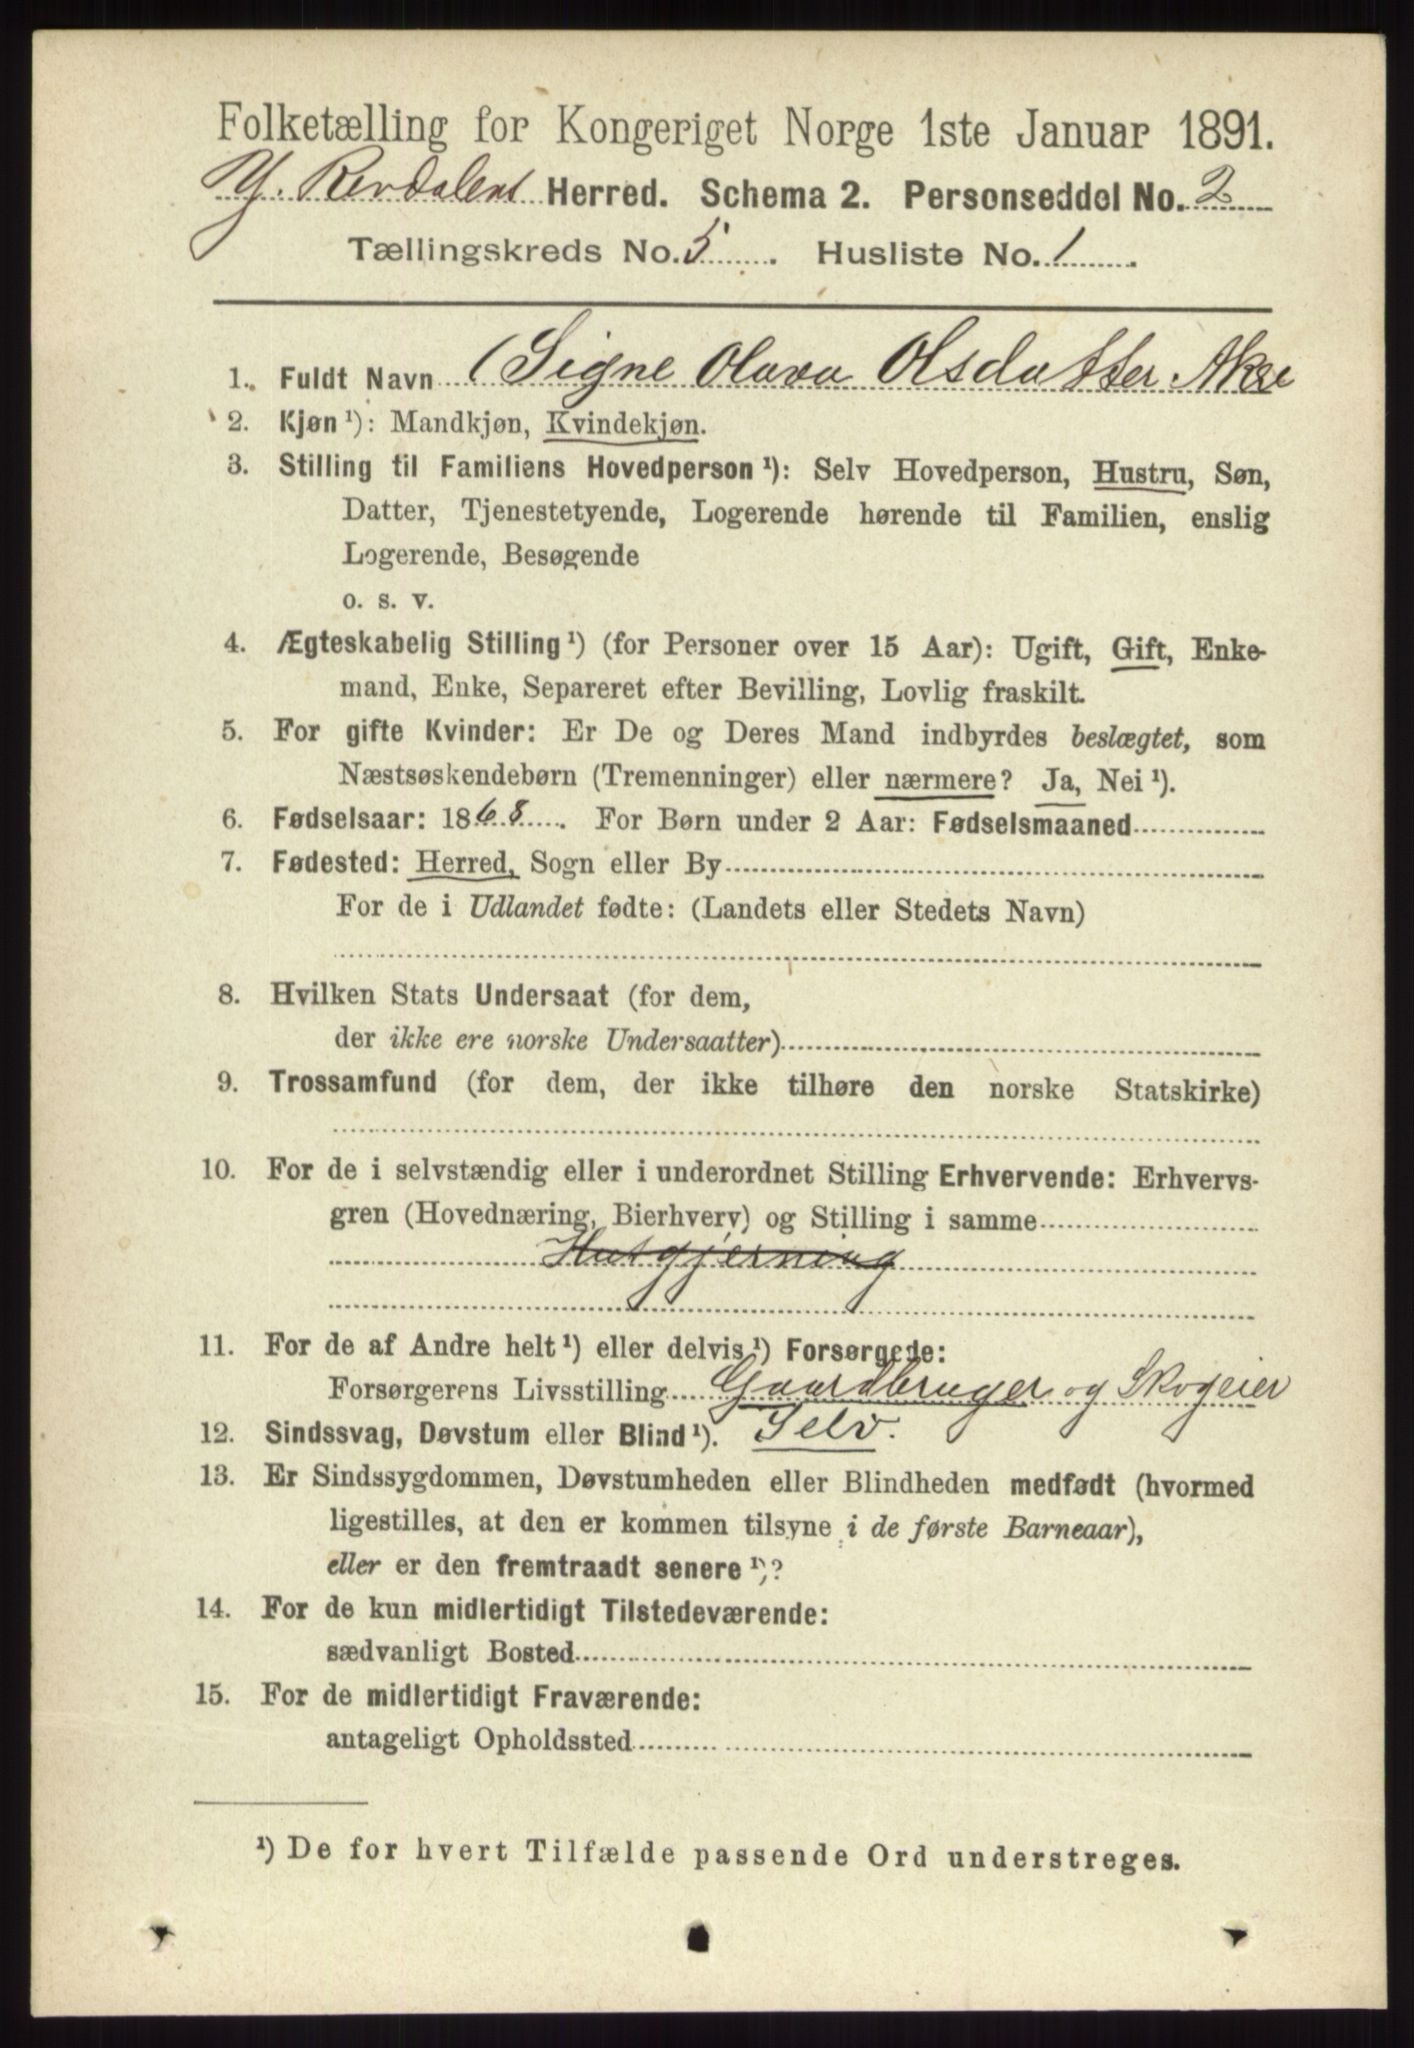 Folketælling for Kongeriget Norge 1ste Januar 1891.
Y. Rendalens Herred. Schema 2. Personseddel No. 2
Tællingskreds No. 5. Husliste No. 1.
1. Fuldt Navn Signe Olava Olsdatter Akre
2. Kjøn ¹): Mandkjøn, Kvindekjøn.
3. Stilling til Familiens Hovedperson ¹): Selv Hovedperson, Hustru, Søn,
Datter, Tjenestetyende, Logerende hørende til Familien, enslig
Logerende, Besøgende
o. s. v.
4. Ægteskabelig Stilling ¹) (for Personer over 15 Aar): Ugift, Gift, Enke-
mand, Enke, Separeret efter Bevilling, Lovlig fraskilt.
5. For gifte Kvinder: Er De og Deres Mand indbyrdes beslægtet, som
Næstsøskendebørn (Tremenninger) eller nærmere? Ja, Nei ¹).
6. Fødselsaar: 1868. For Børn under 2 Aar: Fødselsmaaned
7. Fødested: Herred, Sogn eller By
For de i Udlandet fødte: (Landets eller Stedets Navn)
8. Hvilken Stats Undersaat (for dem,
der ikke ere norske Undersaatter)
9. Trossamfund (for dem, der ikke tilhøre den norske Statskirke)
10. For de i selvstændig eller i underordnet Stilling Erhvervende: Erhvervs-
gren (Hovednæring, Bierhverv) og Stilling i samme
Husgjerning
11. For de af Andre helt ¹) eller delvis ¹) Forsørgede:
Forsørgerens Livsstilling Gaardbruger og Skogeier
12. Sindssvag, Døvstum eller Blind ¹). Selv.
13. Er Sindssygdommen, Døvstumheden eller Blindheden medfødt (hvormed
ligestilles, at den er kommen tilsyne i de første Barneaar),
eller er den fremtraadt senere ¹)?
14. For de kun midlertidigt Tilstedeværende:
sædvanligt Bosted
15. For de midlertidigt Fraværende:
antageligt Opholdssted
¹) De for hvert Tilfælde passende Ord understreges.